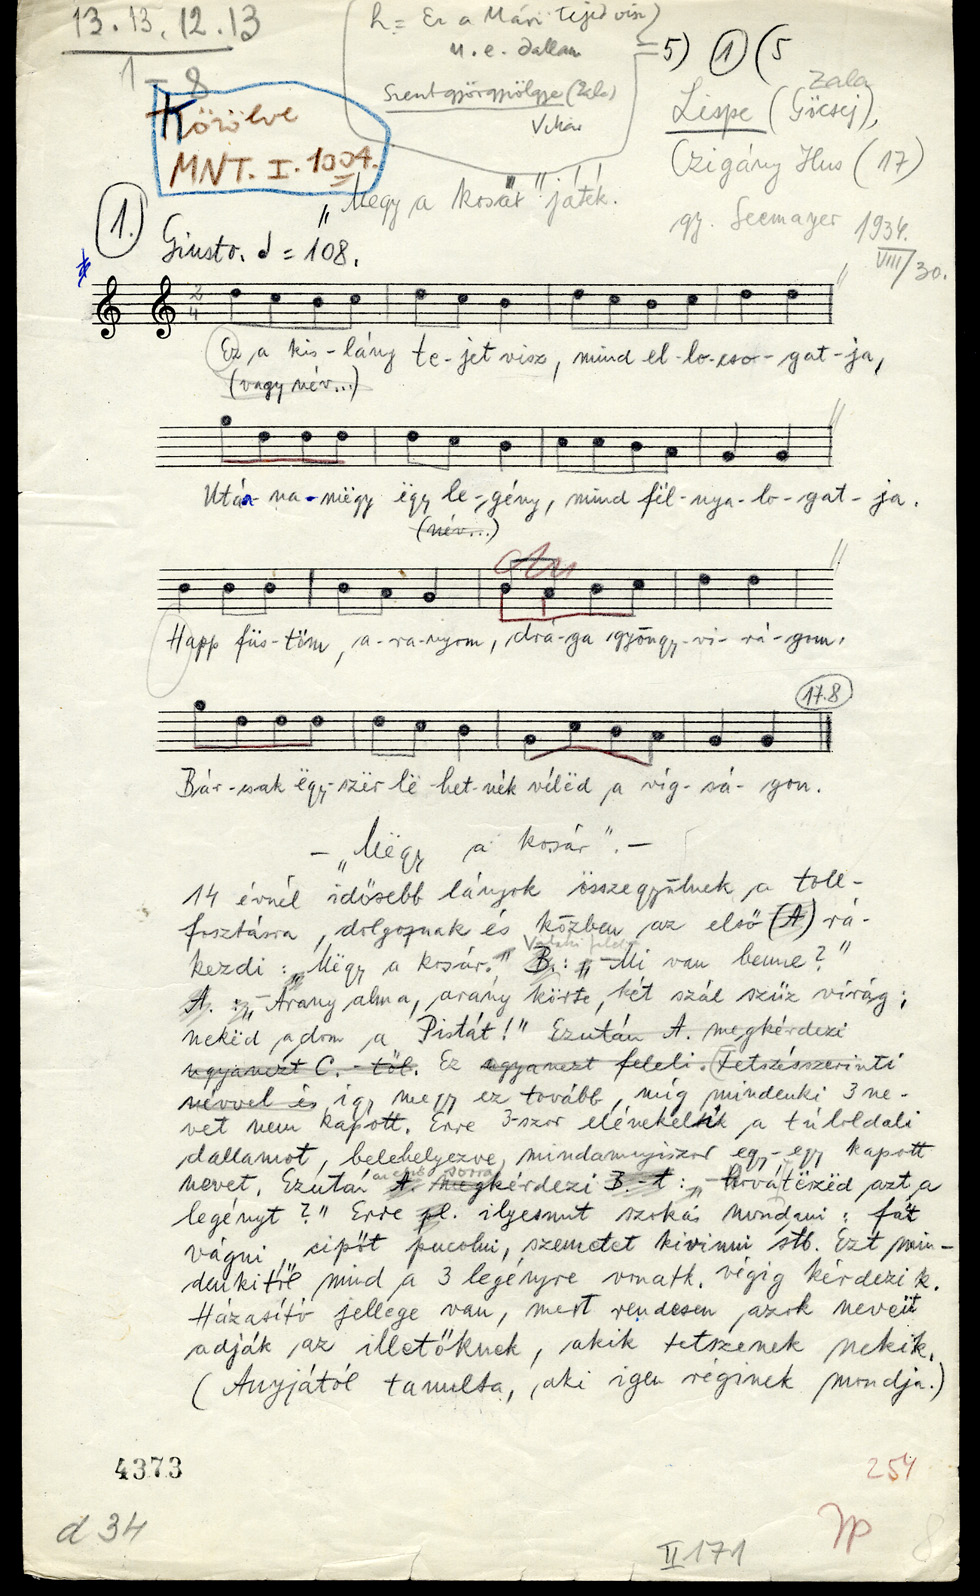 13. 13. 12. 13
1 – 8
(h = Ez a Mári tejed visz)
u. e. dallam
Szentgyörgyvölgye (Zala)
Vikár
= 5) ① (5
Zala
Lispe (Göcsej),
Czigány Ilus (17)
gy. Seemayer 1934.
VIII/30.
Közölve
MNT. I. 1004.
"Megy a kosár" játék.
1.
Giusto. = 108.
2
4
Ez a kis-lány te-jet visz, mind el-lo-cso-gat-ja,
(vagy név...)
Után-na-mëgy ëgy le-gény, mind föl-nya-lo-gat-ja.
(név...)
Happ füs-töm, a-ra-nyom, drá-ga gyöngy-vi-rá-gom.
17.8
Bár-csak ëgy-szër lë-het-nék vélëd a víg-sá-gon.
– „Mëgy a kosár". –
14 évnél idősebb lányok összegyűlnek a toll-
fosztásra, dolgoznak és közben az első (A) rá-
kezdi: „Mëgy a kosár." B.: „– Mi van benne?"
A.: „– Arany alma, arany körte, két szál szűz virág;
nekëd adom a Pistát!" Ezután A. megkérdezi
ugyanezt C.-től. Ez ugyanezt feleli. (Tetszésszerinti
névvel és így megy ez tovább, míg mindenki 3 ne-
vet nem kapott. Erre 3-szor eléneklik a túloldali
dallamot, belehelyezve mindannyiszor egy-egy kapott
nevet. Ezután A. megkérdezi B.-t: „– Hová tëszëd azt a
legényt?" Erre pl. ilyesmit szokás mondani: fát
vágni, cipőt pucolni, szemetet kivinni stb. Ezt min-
denkitől mind a 3 legényre vonatk. végig kérdezik.
Házasító jellege van, mert rendesen azok nevét
adják az illetőknek, akik tetszenek nekik.
(Anyjától tanulta, aki igen réginek mondja.)
4373
254
d 34
II 171
8